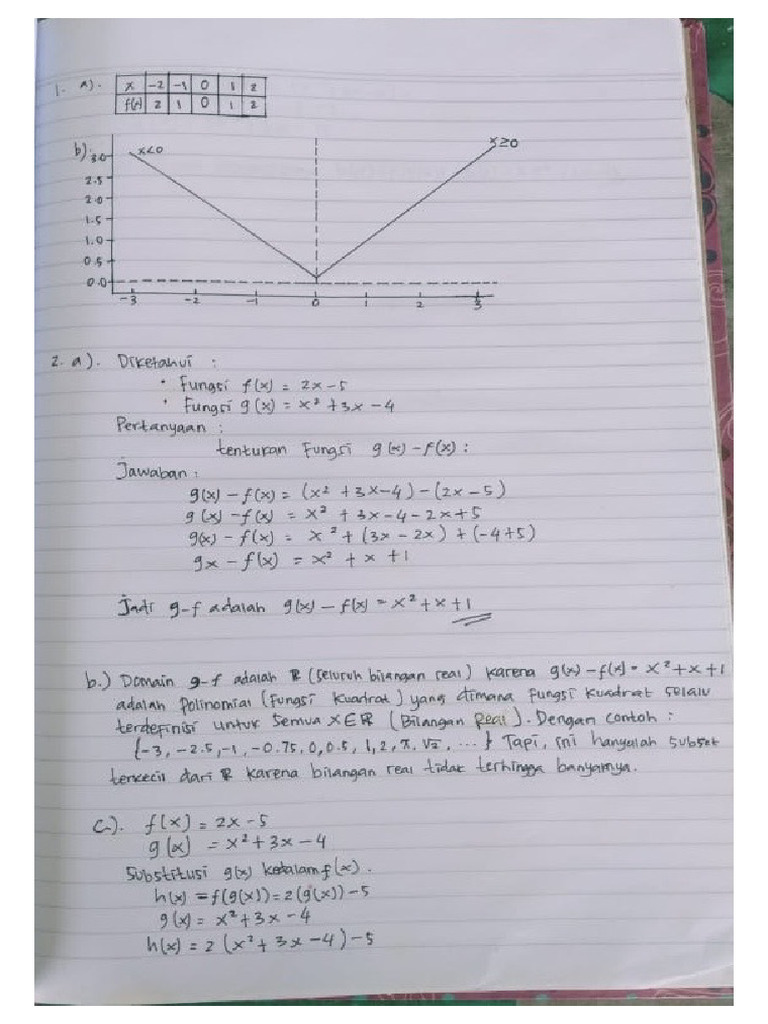 1. a). x -2 -1 0 1 2
f(x) 2 1 0 1 2
b).
x<0
x≥0
3.0
2.5
2.0
1.5
1.0
0.5
0.0
-3 -2 -1 0 1 2 3
2. a). Diketahui :
• Fungsi f(x) = 2x - 5
• Fungsi g(x) = x² + 3x - 4
Pertanyaan :
tentukan Fungsi g(x) - f(x) :
Jawaban :
g(x) - f(x) = (x² + 3x - 4) - (2x - 5)
g(x) - f(x) = x² + 3x - 4 - 2x + 5
g(x) - f(x) = x² + (3x - 2x) + (-4+5)
gx - f(x) = x² + x + 1
Jadi g-f adalah g(x) - f(x) = x² + x + 1
b.) Domain g-f adalah ℝ (seluruh bilangan real) karena g(x) - f(x) = x² + x + 1
adalah polinomial (fungsi kuadrat) yang dimana fungsi kuadrat selalu
terdefinisi untuk semua x∈ℝ (Bilangan Real). Dengan contoh :
{-3, -2.5, -1, -0.75, 0, 0.5, 1, 2, π, √2, ...} Tapi, ini hanyalah subset
terkecil dari ℝ karena bilangan real tidak terhingga banyaknya.
c.). f(x) = 2x - 5
g(x) = x² + 3x - 4
Substitusi g(x) kedalam f(x).
h(x) = f(g(x)) = 2(g(x)) - 5
g(x) = x² + 3x - 4
h(x) = 2(x² + 3x - 4) - 5